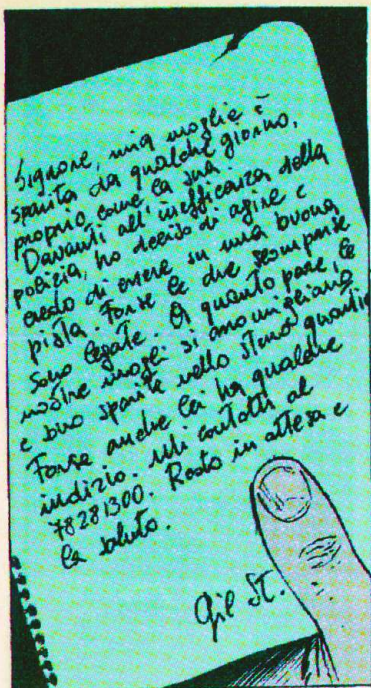 Signore, mia moglie è
sparita da qualche giorno,
proprio come la sua.
Davanti all'inefficenza della
polizia, ho deciso di agire e
credo di essere su una buona
pista. Forse le due scomparse
sono legate. A quanto pare, le
nostre mogli si assomigliano
e sono sparite nello stesso quartie
Forse anche lei ha qualche
indizio. Mi contatti al
78281300. Resto in attesa e
la saluto.
Gil St.